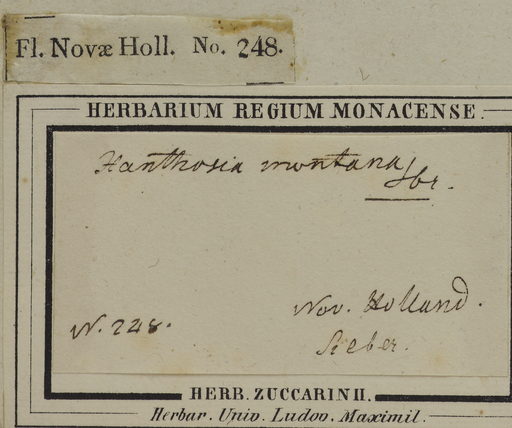 Fl. Novæ Holl. No. 248.
HERBARIUM REGIUM MONACENSE.
Xanthosia montana Sbr.
Nov. Holland.
N. 248. Sieber.
HERB. ZUCCARINII.
Herbar. Univ. Ludov. Maximil.